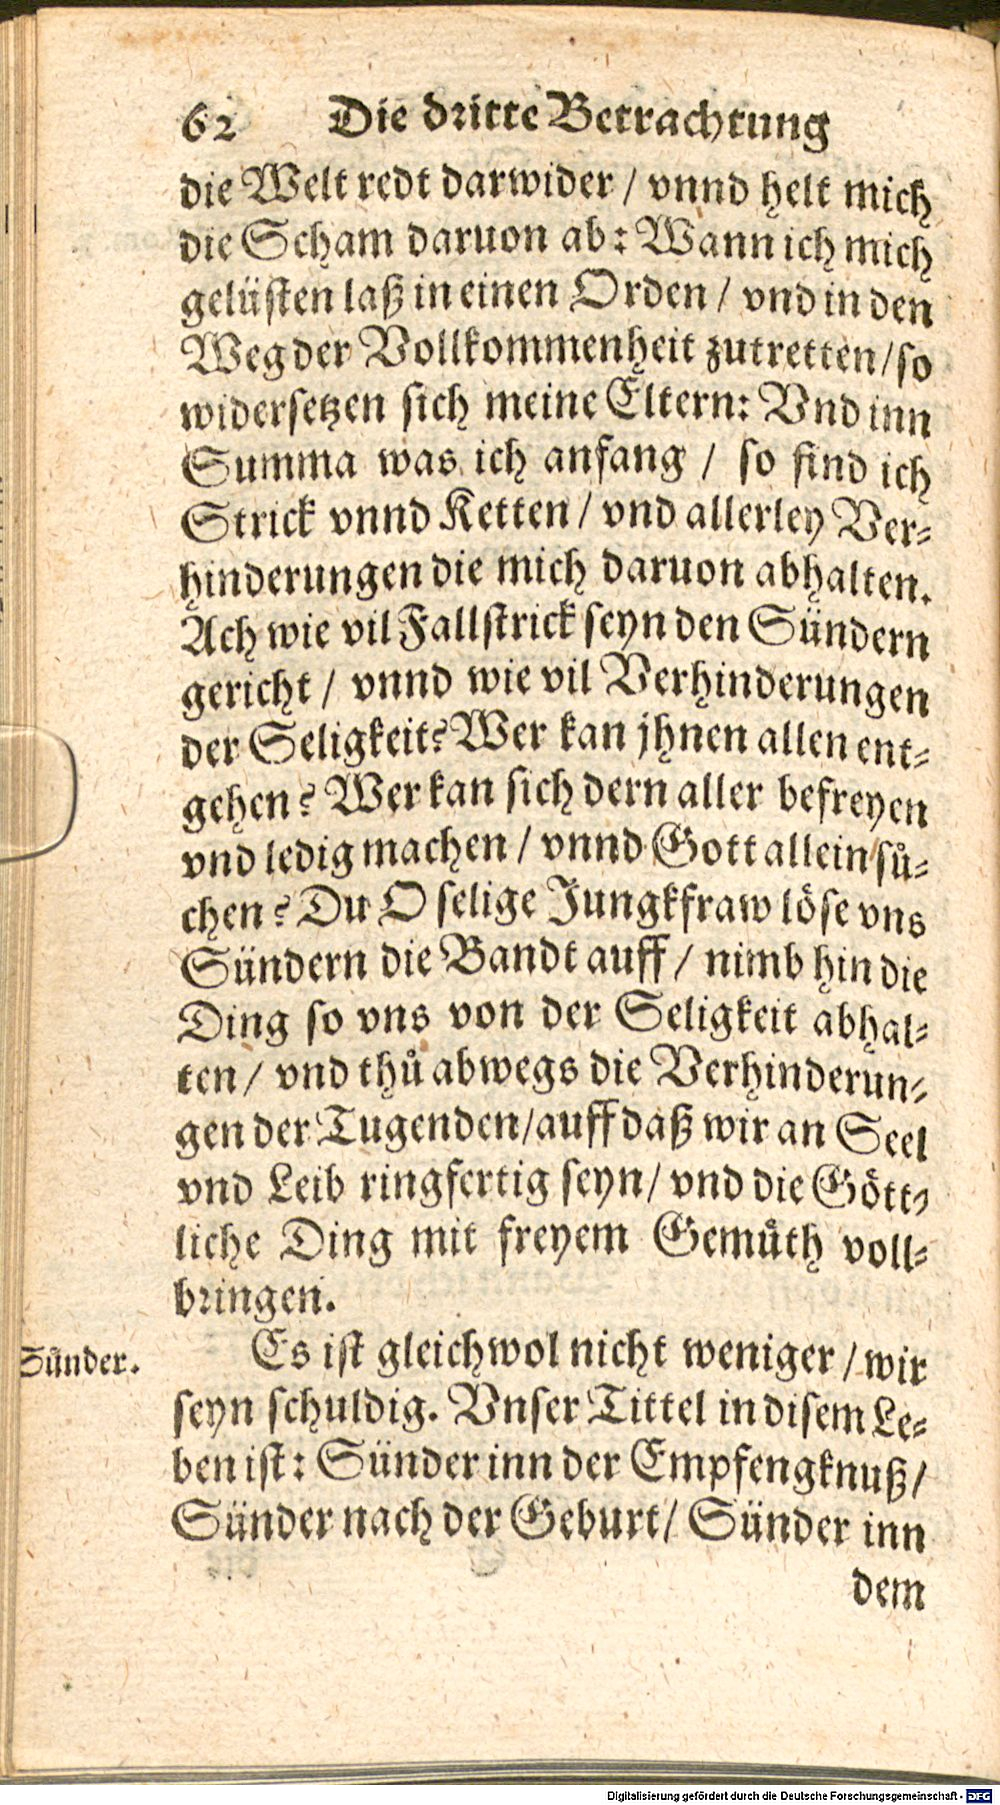 62 Die dritte Betrachtung
die Welt redt darwider / vnnd helt mich
die Scham daruon ab: Wann ich mich
gelüsten laß in einen Orden / vnd in den
Weg der Vollkommenheit zutretten/so
widersetzen sich meine Eltern: Vnd inn
Summa was ich anfang / so find ich
Strick vnnd Ketten / vnd allerley Ver-
hinderungen die mich daruon abhalten.
Ach wie vil Fallstrick seyn den Sündern
gericht / vnnd wie vil Verhinderungen
der Seligkeit? Wer kan jhnen allen ent-
gehen? Wer kan sich dern aller befreyen
vnd ledig machen / vnnd Gott allein sů-
chen? Du O selige Jungkfraw löse vns
Sündern die Bandt auff / nimb hin die
Ding so vns von der Seligkeit abhal-
ten / vnd thů abwegs die Verhinderun-
gen der Tugenden/auff daß wir an Seel
vnd Leib ringfertig seyn/ vnd die Gött-
liche Ding mit freyem Gemůth voll-
bringen.
Sünder.
Es ist gleichwol nicht weniger / wir
seyn schuldig. Vnser Tittel in disem Le-
ben ist: Sünder inn der Empfengknuß/
Sünder nach der Geburt/ Sünder inn
dem
Digitalisierung gefördert durch die Deutsche Forschungsgemeinschaft - DFG